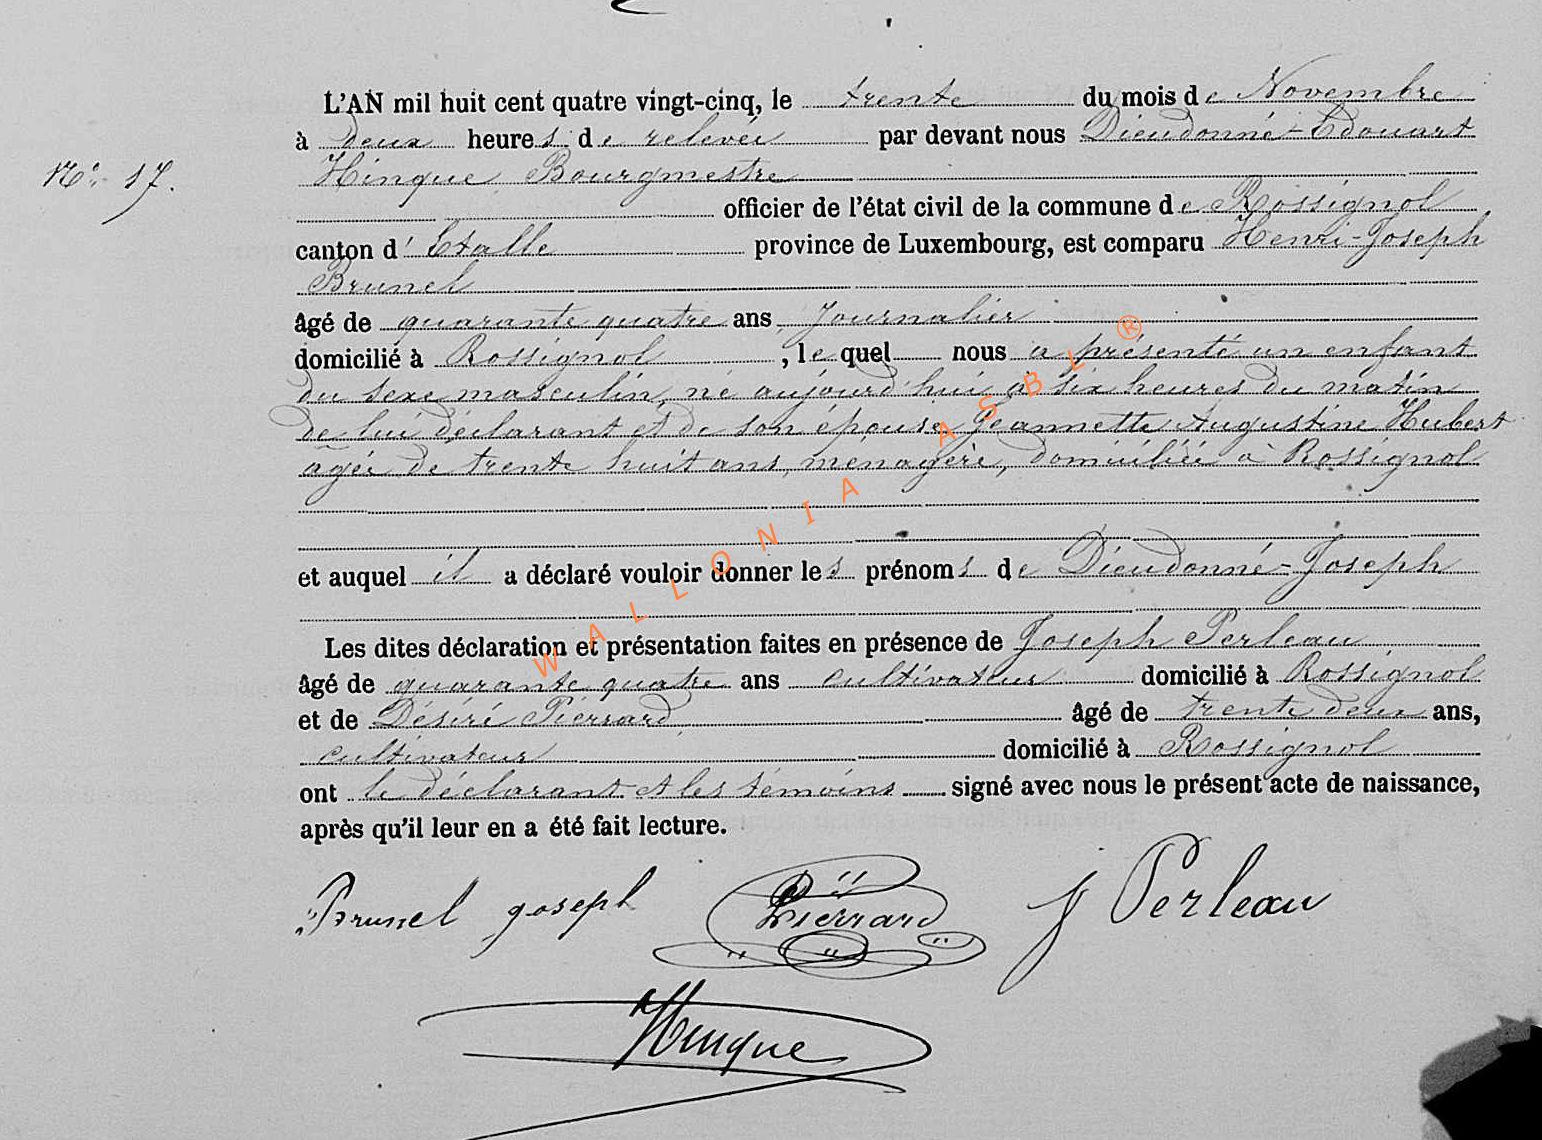 L'AN mil huit cent quatre vingt-cinq, le trente du mois de Novembre
à deux heures de relevée par devant nous Dieudonné-Edouart
N° 17.
Hinque Bourgmestre
officier de l'état civil de la commune de Rossignol
canton d'Etalle province de Luxembourg, est comparu Henri-Joseph
Brunel
âgé de quarante quatre ans Journalier
domicilié à Rossignol, lequel nous a présenté un enfant
du sexe masculin, né aujourd'hui à six heures du matin
de lui déclarant et de son épouse Jeannette Augustine Hubert
agée de trente huit ans, menagère, domiciliée à Rossignol
et auquel il a déclaré vouloir donner les prénoms de Dieudonné-Joseph
Les dites déclaration et présentation faites en présence de Joseph Perleau
âgé de quarante quatre ans cultivateur domicilié à Rossignol
et de Désiré Piérrard âgé de trente deux ans,
cultivateur domicilié à Rossignol
ont le déclarant et les témoins signé avec nous le présent acte de naissance,
après qu'il leur en a été fait lecture.
Brunel joseph D Pierrard J Perleau
Hinque
WALLONIA ASBL ®